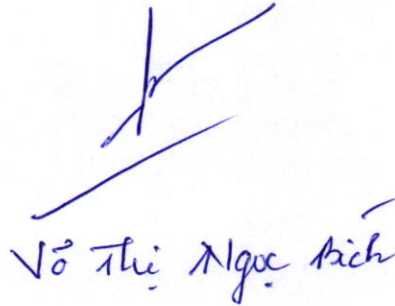 Võ Thị Ngọc Bích